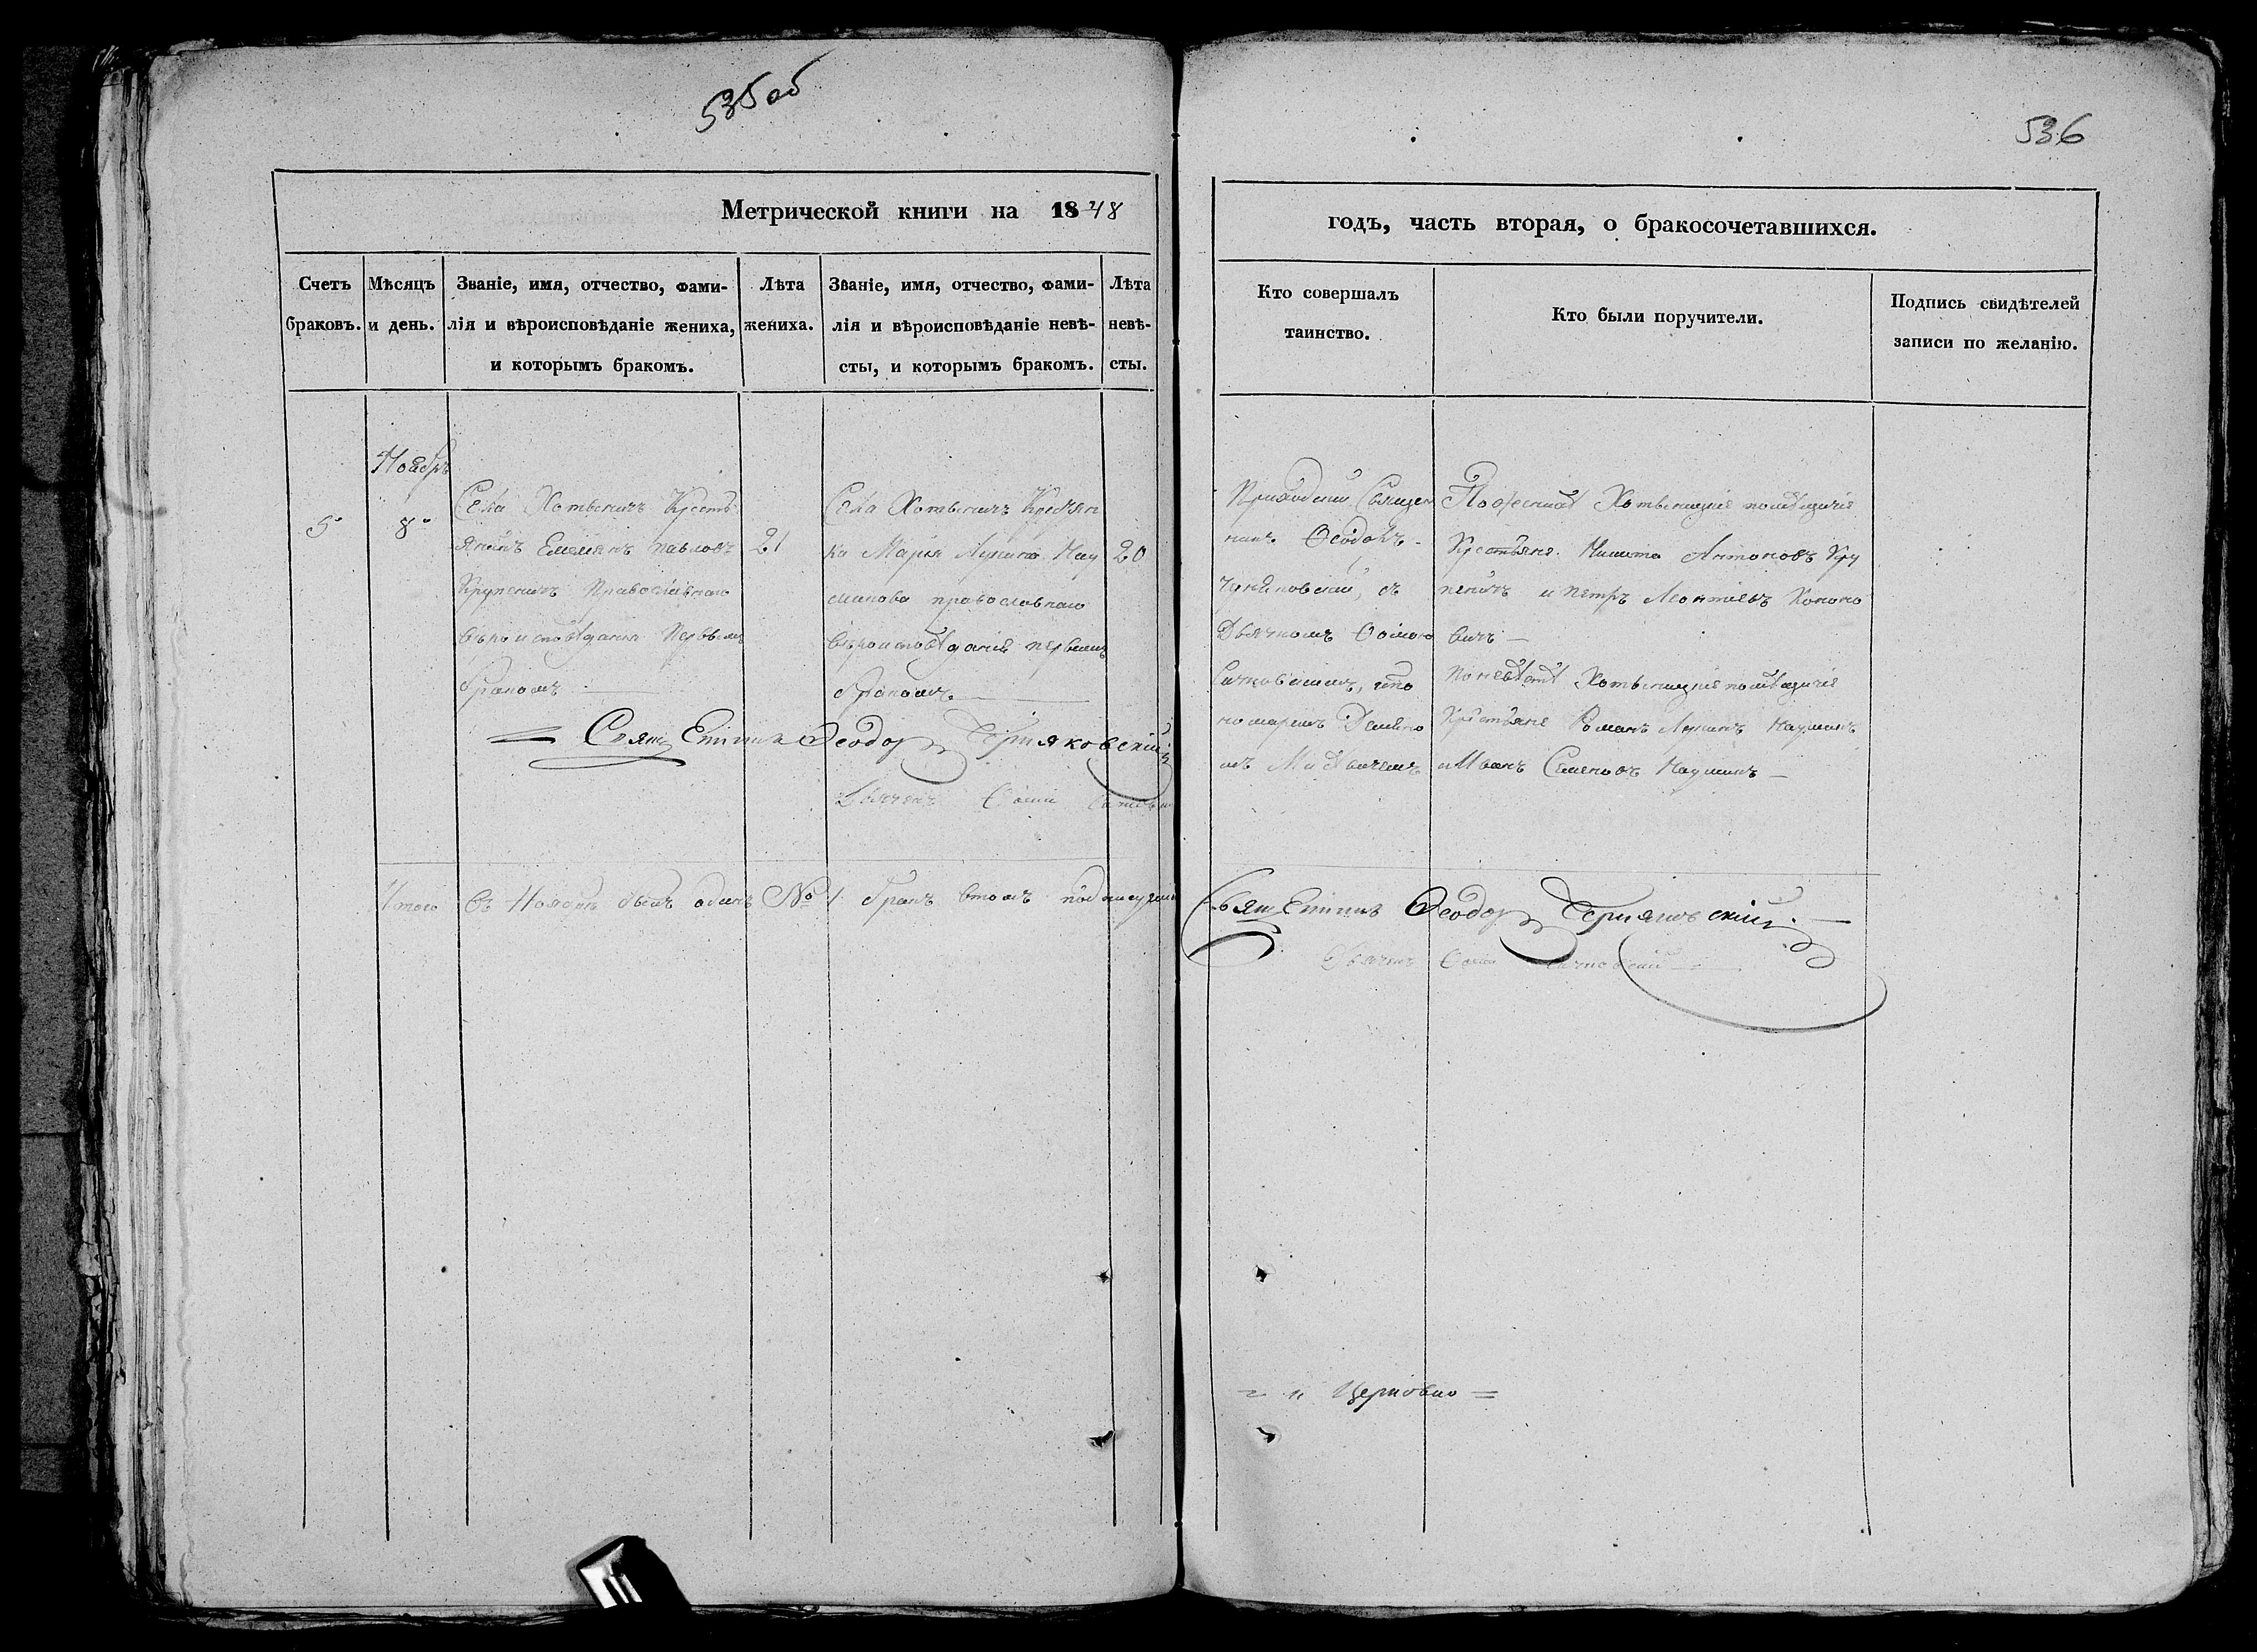 535 об
536
Метрической книги на 1848
годъ, часть вторая, о бракосочетавшихся.
Счетъ
браковъ.
Мѣсяцъ
и день.
Званіе, имя, отчество, фами-
лія и вѣроисповѣданіе жениха,
и которымъ бракомъ.
Лѣта
жениха.
Званіе, имя, отчество, фами-
лія и вѣроисповѣданіе невѣ-
сты, и которымъ бракомъ.
Лѣта
невѣ-
сты.
Кто совершалъ
таинство.
Кто были поручители.
Подпись свидѣтелей
записи по желанію.
5
Ноябрь
8
Села Хотыничъ Кресть
янинъ Емелянъ Павловъ
Крупеничъ Православнаго
вѣроисповѣданія Первымъ
бракомъ
21
Села Хотыничъ Крестян
ка Марья Лукина Нау
мчикова православнаго
вѣроисповѣданія первымъ
бракомъ.
20
Приходскій Священ
никъ Ѳеодоръ
съ
Дьячкомъ
и по
номаремъ
По женихѣ Хотыницкіе помѣщичіе
Крестьяне Никита Антоновъ Кру
пеничъ и Петръ Леонтіевъ Конано
вичъ —
По невѣстѣ Хотыницкіе помѣщичіе
Крестьяне Романъ Лукинъ
и Иванъ Семеновъ
Священникъ Ѳеодоръ Терпяковскій
Дьячекъ
Итого въ Ноябрѣ былъ одинъ № 1 бракъ въ томъ подписуемъ
Священникъ Ѳеодоръ Терпяковскій. —
Дьячекъ
= и Церковно =